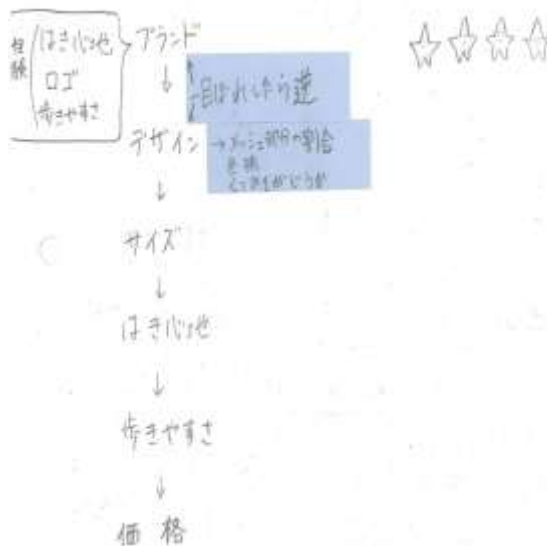 経験
はき心地
ロゴ
歩きやすさ
ブランド
↓
目ぼれしたら逆
デザイン → メッシュ部分の割合
色
どうか
↓
サイズ
↓
はき心地
↓
歩きやすさ
↓
価格